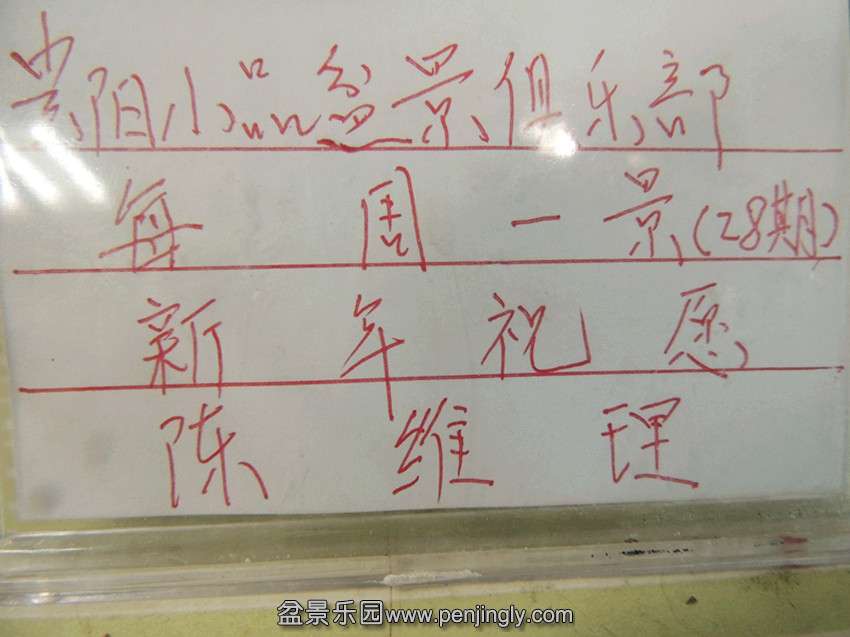 贵阳小品盆景俱乐部
每周一景(28期)
新年祝愿
陈维理
盆景乐园www.penjingly.com